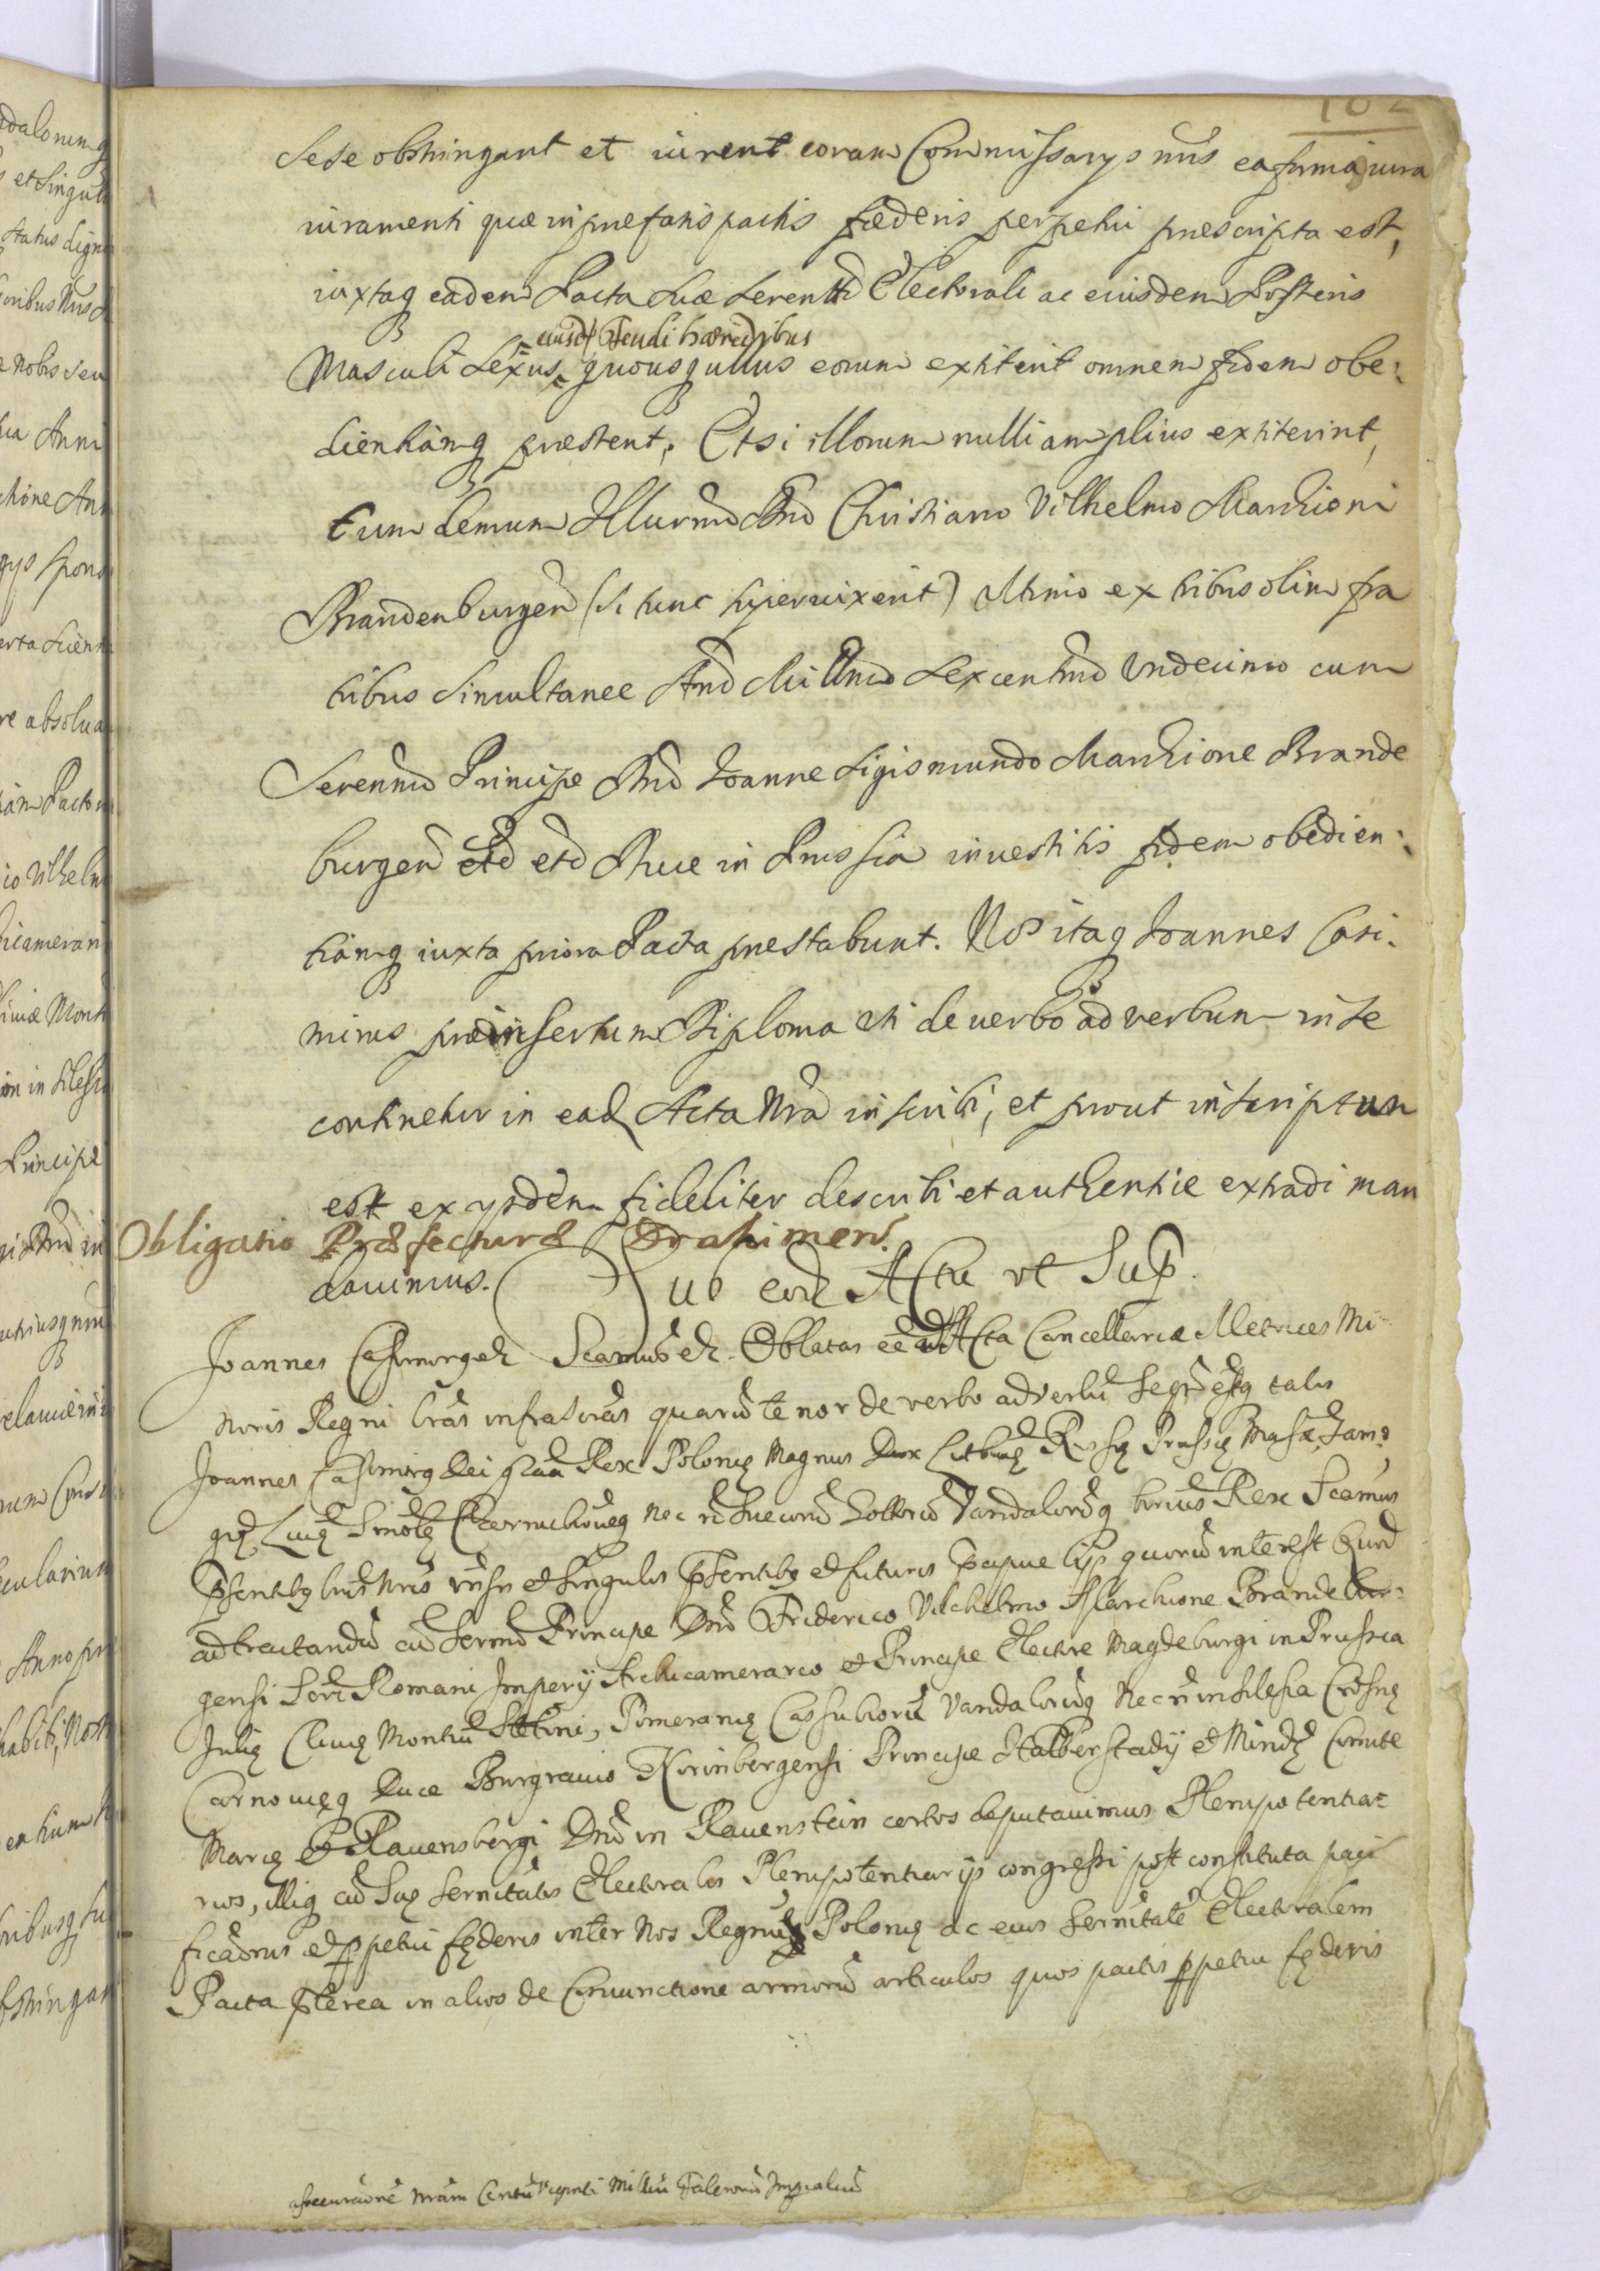 102
Sese obstringant et iurent coram Commissarys nris ea forma iura
iuramenti quæ in præfatis pactis fæderis perpetui præscripta est,
iuxtaq eadem Pacta Suæ Serenttti Electorali ac eiusdem Posteris
eiusd feudi hæredibus
Masculi Sexus, quousq ullus eorum extiterit omnem fidem obe:
dientiamq præstent, Et si illorum nulli amplius extiterint,
tum demum Illurmo Dno Christiano Vilhelmo Marchioni
Brandenburgen (si tunc superuixerit) Ultimo ex tribus olim fra
tribus simultanee Ano Millmo Sexcentmo Undecimo cum
Serenmo Principe Dno Joanne Sigismundo Marchione Brande
burgen etc etc Duce in Prussia inuestitis fidem obedien:
tiamq iuxta priora Pacta præstabunt. Nos itaq Joannes Casi:
mirus præinsertum Diploma uti de uerbo ad verbum in se
continetur in ead Acta Nra inscribi, et prout inscriptum
est ex ysdem fideliter describi et authentice extradi man
Obligatio Præfecturæ Drahimen.
dauimus. Sub eod Actu ut Sup.
Joannes Casimirg etc Seamus etc. Oblatas eê ad Acta Cancellariæ Metrices Mi
noris Regni lrâs infrascrâs quarû tenor de verbo ad verbû seqr estq talis
Joannes Casimirg Dei grâa Rex Polonię Magnus Dux Litwaę Russię Prussię Masæ Sam:
gię Liuę Smolę Czerniechouięq nec nô Suecorû Gottorû Vandalorûq hærius Rex Seamus
Psentibg lris Nris vnsis et singulis psentibg et futuris pcipue ijs quorû interest Quod
ad tractandû cû Sermo Principe Dno Friderico Vilehelmo Marchione Brandebur:
gensi Scri Romani Impery Archicamerario et Principe Electore Magdeburgi in Prussia
Julię Cliuię Montiû Stetini, Pomeranię Cassubiorû Vandalorûq Nec nô in Silesia Crosnę
Carnouięq Duce Burgrauio Norinbergensi Principe Halberstadij et Mindę Comite
Marcę et Rauensbergi Dno in Rauenstein certos deputauimus Plenipotentia:
rios, illiq cû Suę Sernitatis Electoralis Plenipotentiarijs congressi post constituta paci
ficâonis et ppetui fęderis inter Nos Regnûq Polonię ac eius Sernitatê Electoralem
Pacta pterea in alios de Coniunctione armorû articulos quos pactis ppetui fęderis
assecuraônê nrâm Centû Viginti Milliû Talerorû Imperialiû